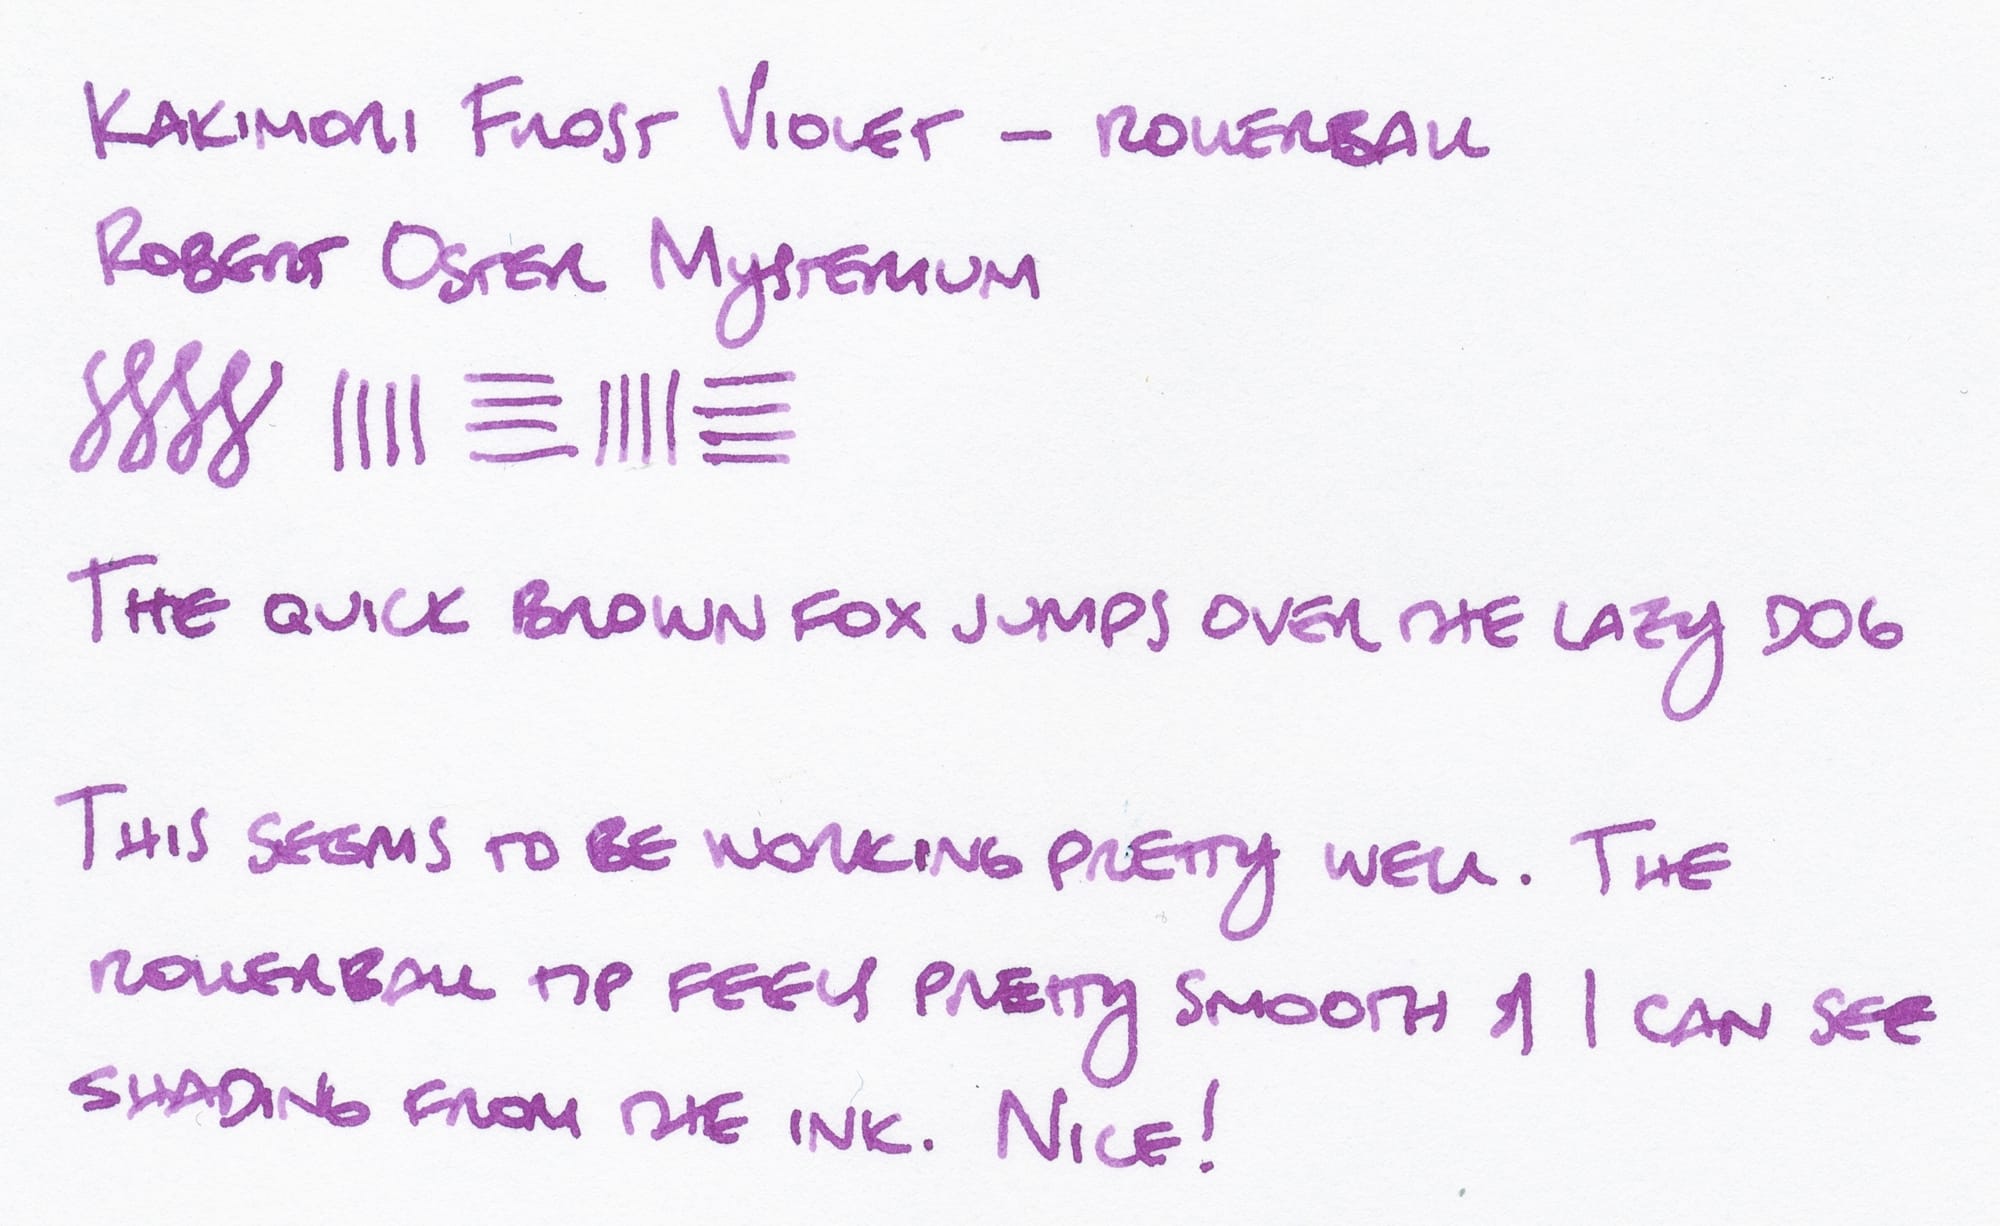 Kakimori Frost Violet – rollerball
Robert Oster Mysterium
The quick brown fox jumps over the lazy dog
This seems to be working pretty well. The
rollerball tip feels pretty smooth & I can see
shading from the ink. Nice!